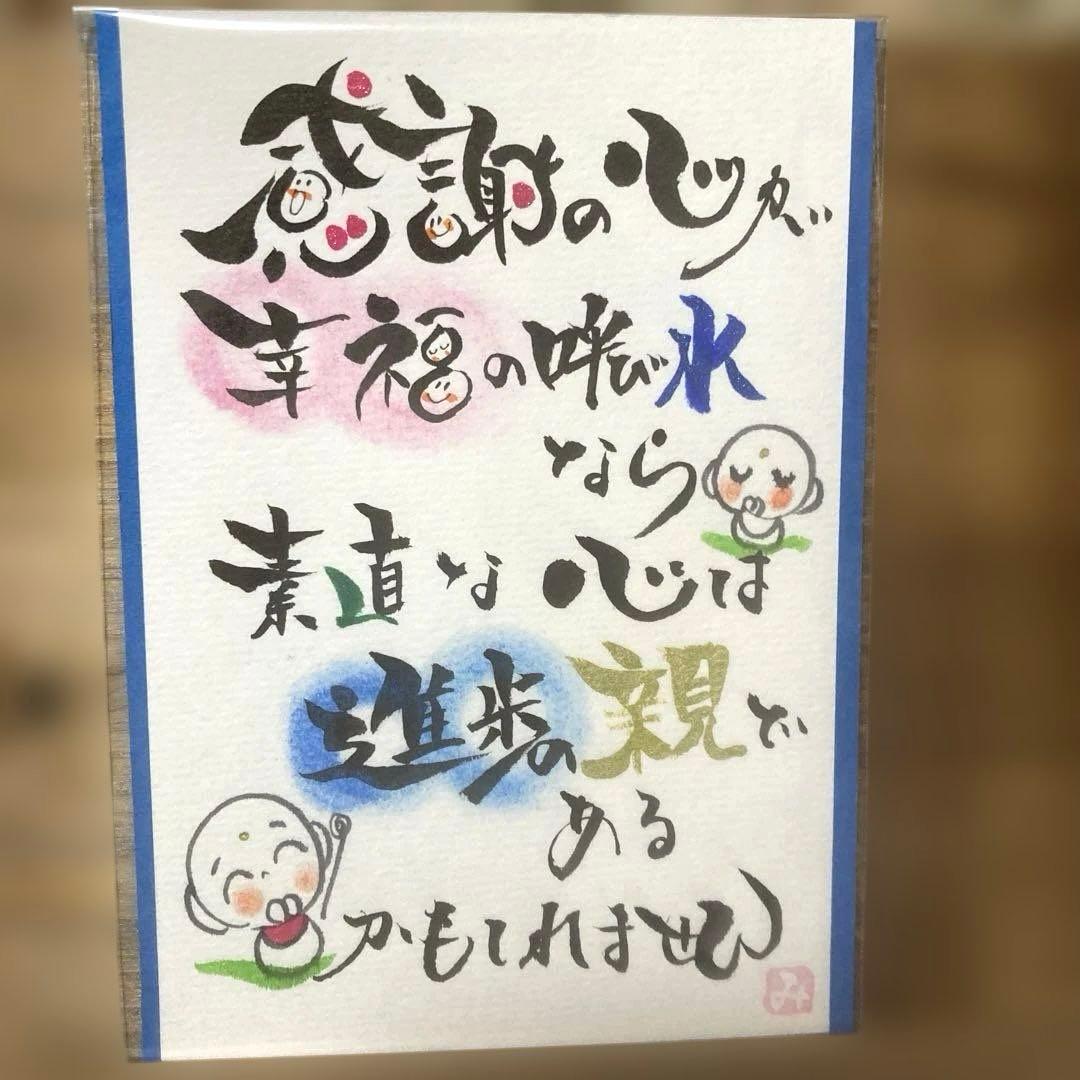 感謝の心が
幸福の呼び水
なら
素直な心は
進歩の親で
ある
かもしれません
み